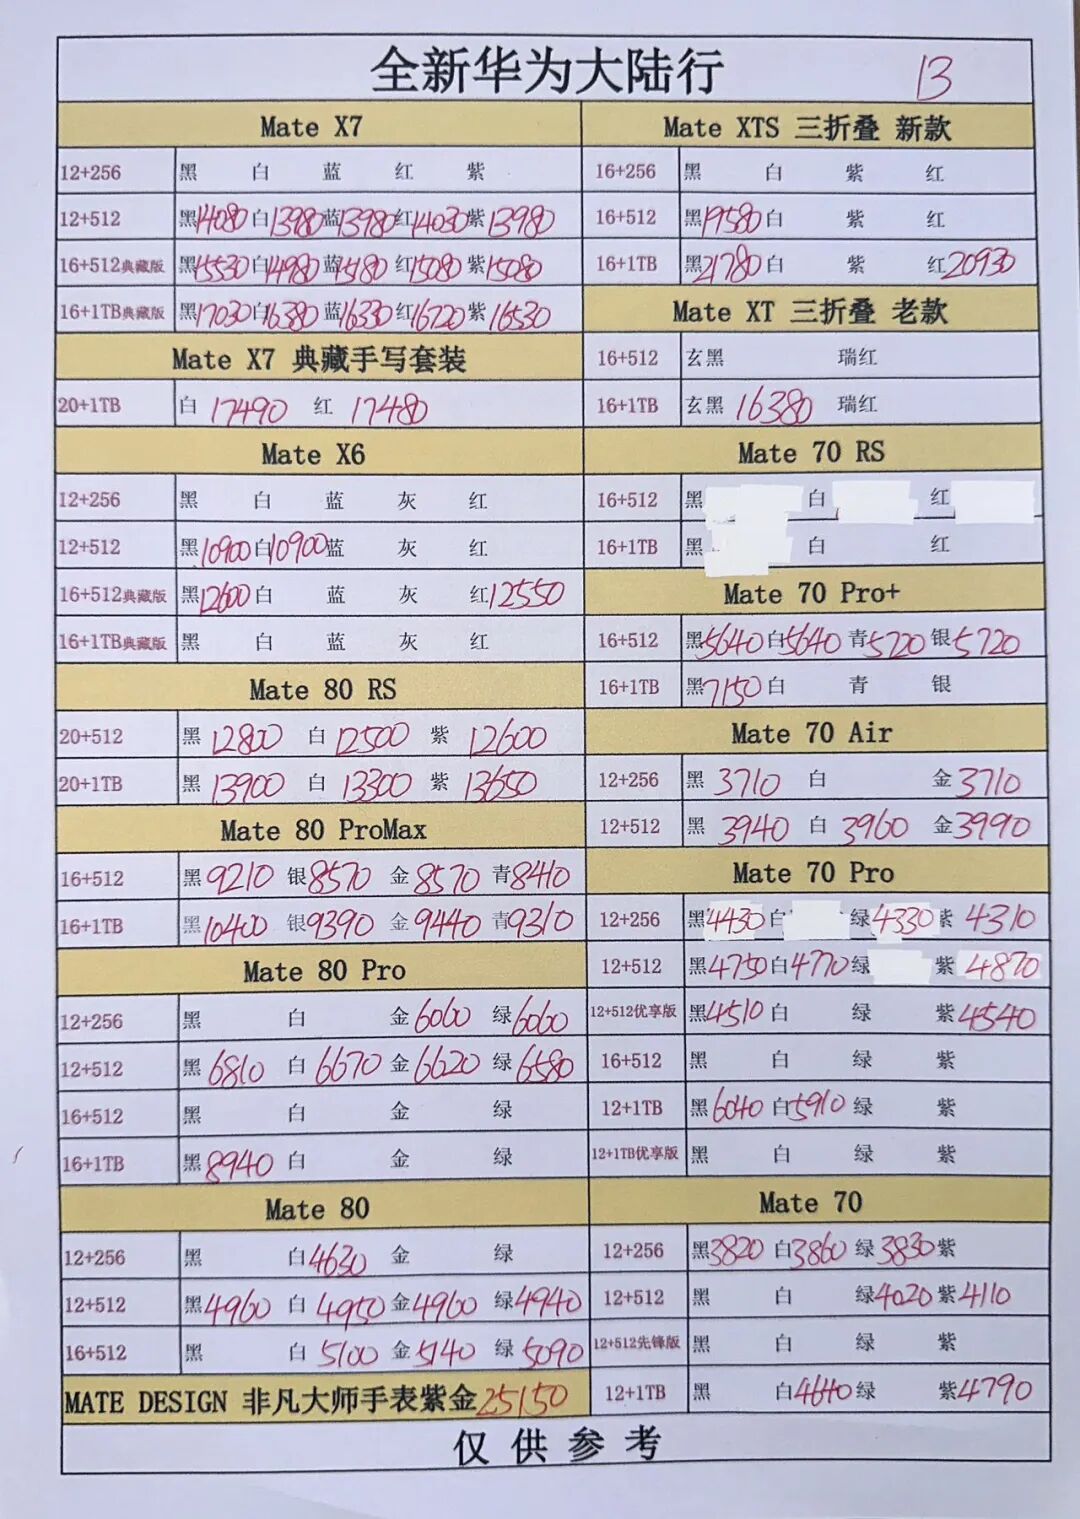 全新华为大陆行 13
Mate X7
12+256 黑 白 蓝 红 紫
12+512 黑14080 白13980 蓝13980 红14030 紫13980
16+512典藏版 黑15530 白14980 蓝15180 红15080 紫15080
16+1TB典藏版 黑17030 白16380 蓝16330 红16720 紫16530
Mate X7 典藏手写套装
20+1TB 白 17490 红 17480
Mate X6
12+256 黑 白 蓝 灰 红
12+512 黑10900 白10900 蓝 灰 红
16+512典藏版 黑12600 白 蓝 灰 红12550
16+1TB典藏版 黑 白 蓝 灰 红
Mate 80 RS
20+512 黑 12800 白 12500 紫 12600
20+1TB 黑 13900 白 13300 紫 13650
Mate 80 ProMax
16+512 黑9210 银8570 金8570 青8410
16+1TB 黑10400 银9390 金9440 青9310
Mate 80 Pro
12+256 黑 白 金6060 绿6060
12+512 黑6810 白6670 金6620 绿6580
16+512 黑 白 金 绿
16+1TB 黑8940 白 金 绿
Mate 80
12+256 黑 白4630 金 绿
12+512 黑4960 白4950 金4960 绿4940
16+512 黑 白5100 金5140 绿5090
MATE DESIGN 非凡大师手表紫金25150
Mate XTS 三折叠 新款
16+256 黑 白 紫 红
16+512 黑19580 白 紫 红
16+1TB 黑21780 白 紫 红20930
Mate XT 三折叠 老款
16+512 玄黑 瑞红
16+1TB 玄黑 16380 瑞红
Mate 70 RS
16+512 黑 白 红
16+1TB 黑 白 红
Mate 70 Pro+
16+512 黑5640 白5640 青5720 银5720
16+1TB 黑7150 白 青 银
Mate 70 Air
12+256 黑 3710 白 金3710
12+512 黑 3940 白 3960 金3990
Mate 70 Pro
12+256 黑4430 白 绿4330 紫 4310
12+512 黑4750 白4770 绿 紫 4870
12+512优享版 黑4510 白 绿 紫4540
16+512 黑 白 绿 紫
12+1TB 黑6040 白5910 绿 紫
12+1TB优享版 黑 白 绿 紫
Mate 70
12+256 黑3820 白3860 绿3830 紫
12+512 黑 白 绿4020 紫4110
12+512先锋版 黑 白 绿 紫
12+1TB 黑 白4640 绿 紫4790
仅供参考